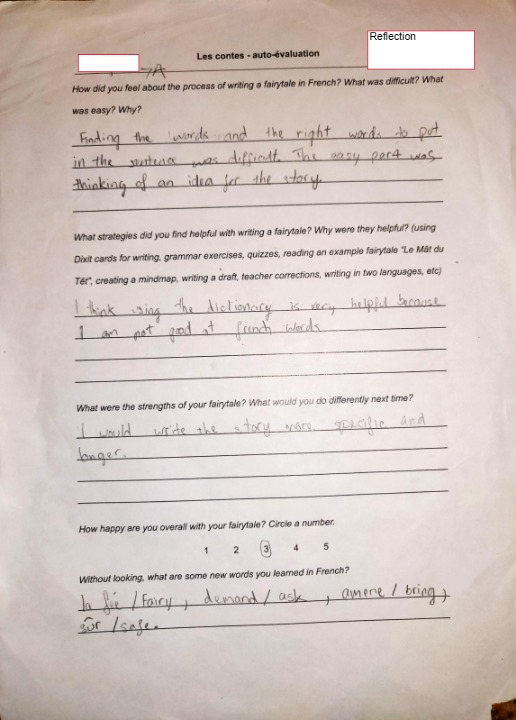 Reflection
Les contes - auto-évaluation
7A
How did you feel about the process of writing a fairytale in French? What was difficult? What
was easy? Why?
Finding the words and the right words to put
in the sentence was difficult. The easy part was
thinking of an idea for the story.
What strategies did you find helpful with writing a fairytale? Why were they helpful? (using
Dixit cards for writing, grammar exercises, quizzes, reading an example fairytale "Le Mât du
Têt", creating a mindmap, writing a draft, teacher corrections, writing in two languages, etc)
I think using the dictionary is very helpful because
I am not good at french words
What were the strengths of your fairytale? What would you do differently next time?
I would write the story more specific and
longer.
How happy are you overall with your fairytale? Circle a number.
1 2 3 4 5
Without looking, what are some new words you learned in French?
la fée / Fairy , demand / ask , amene / bring ,
sûr / safe.